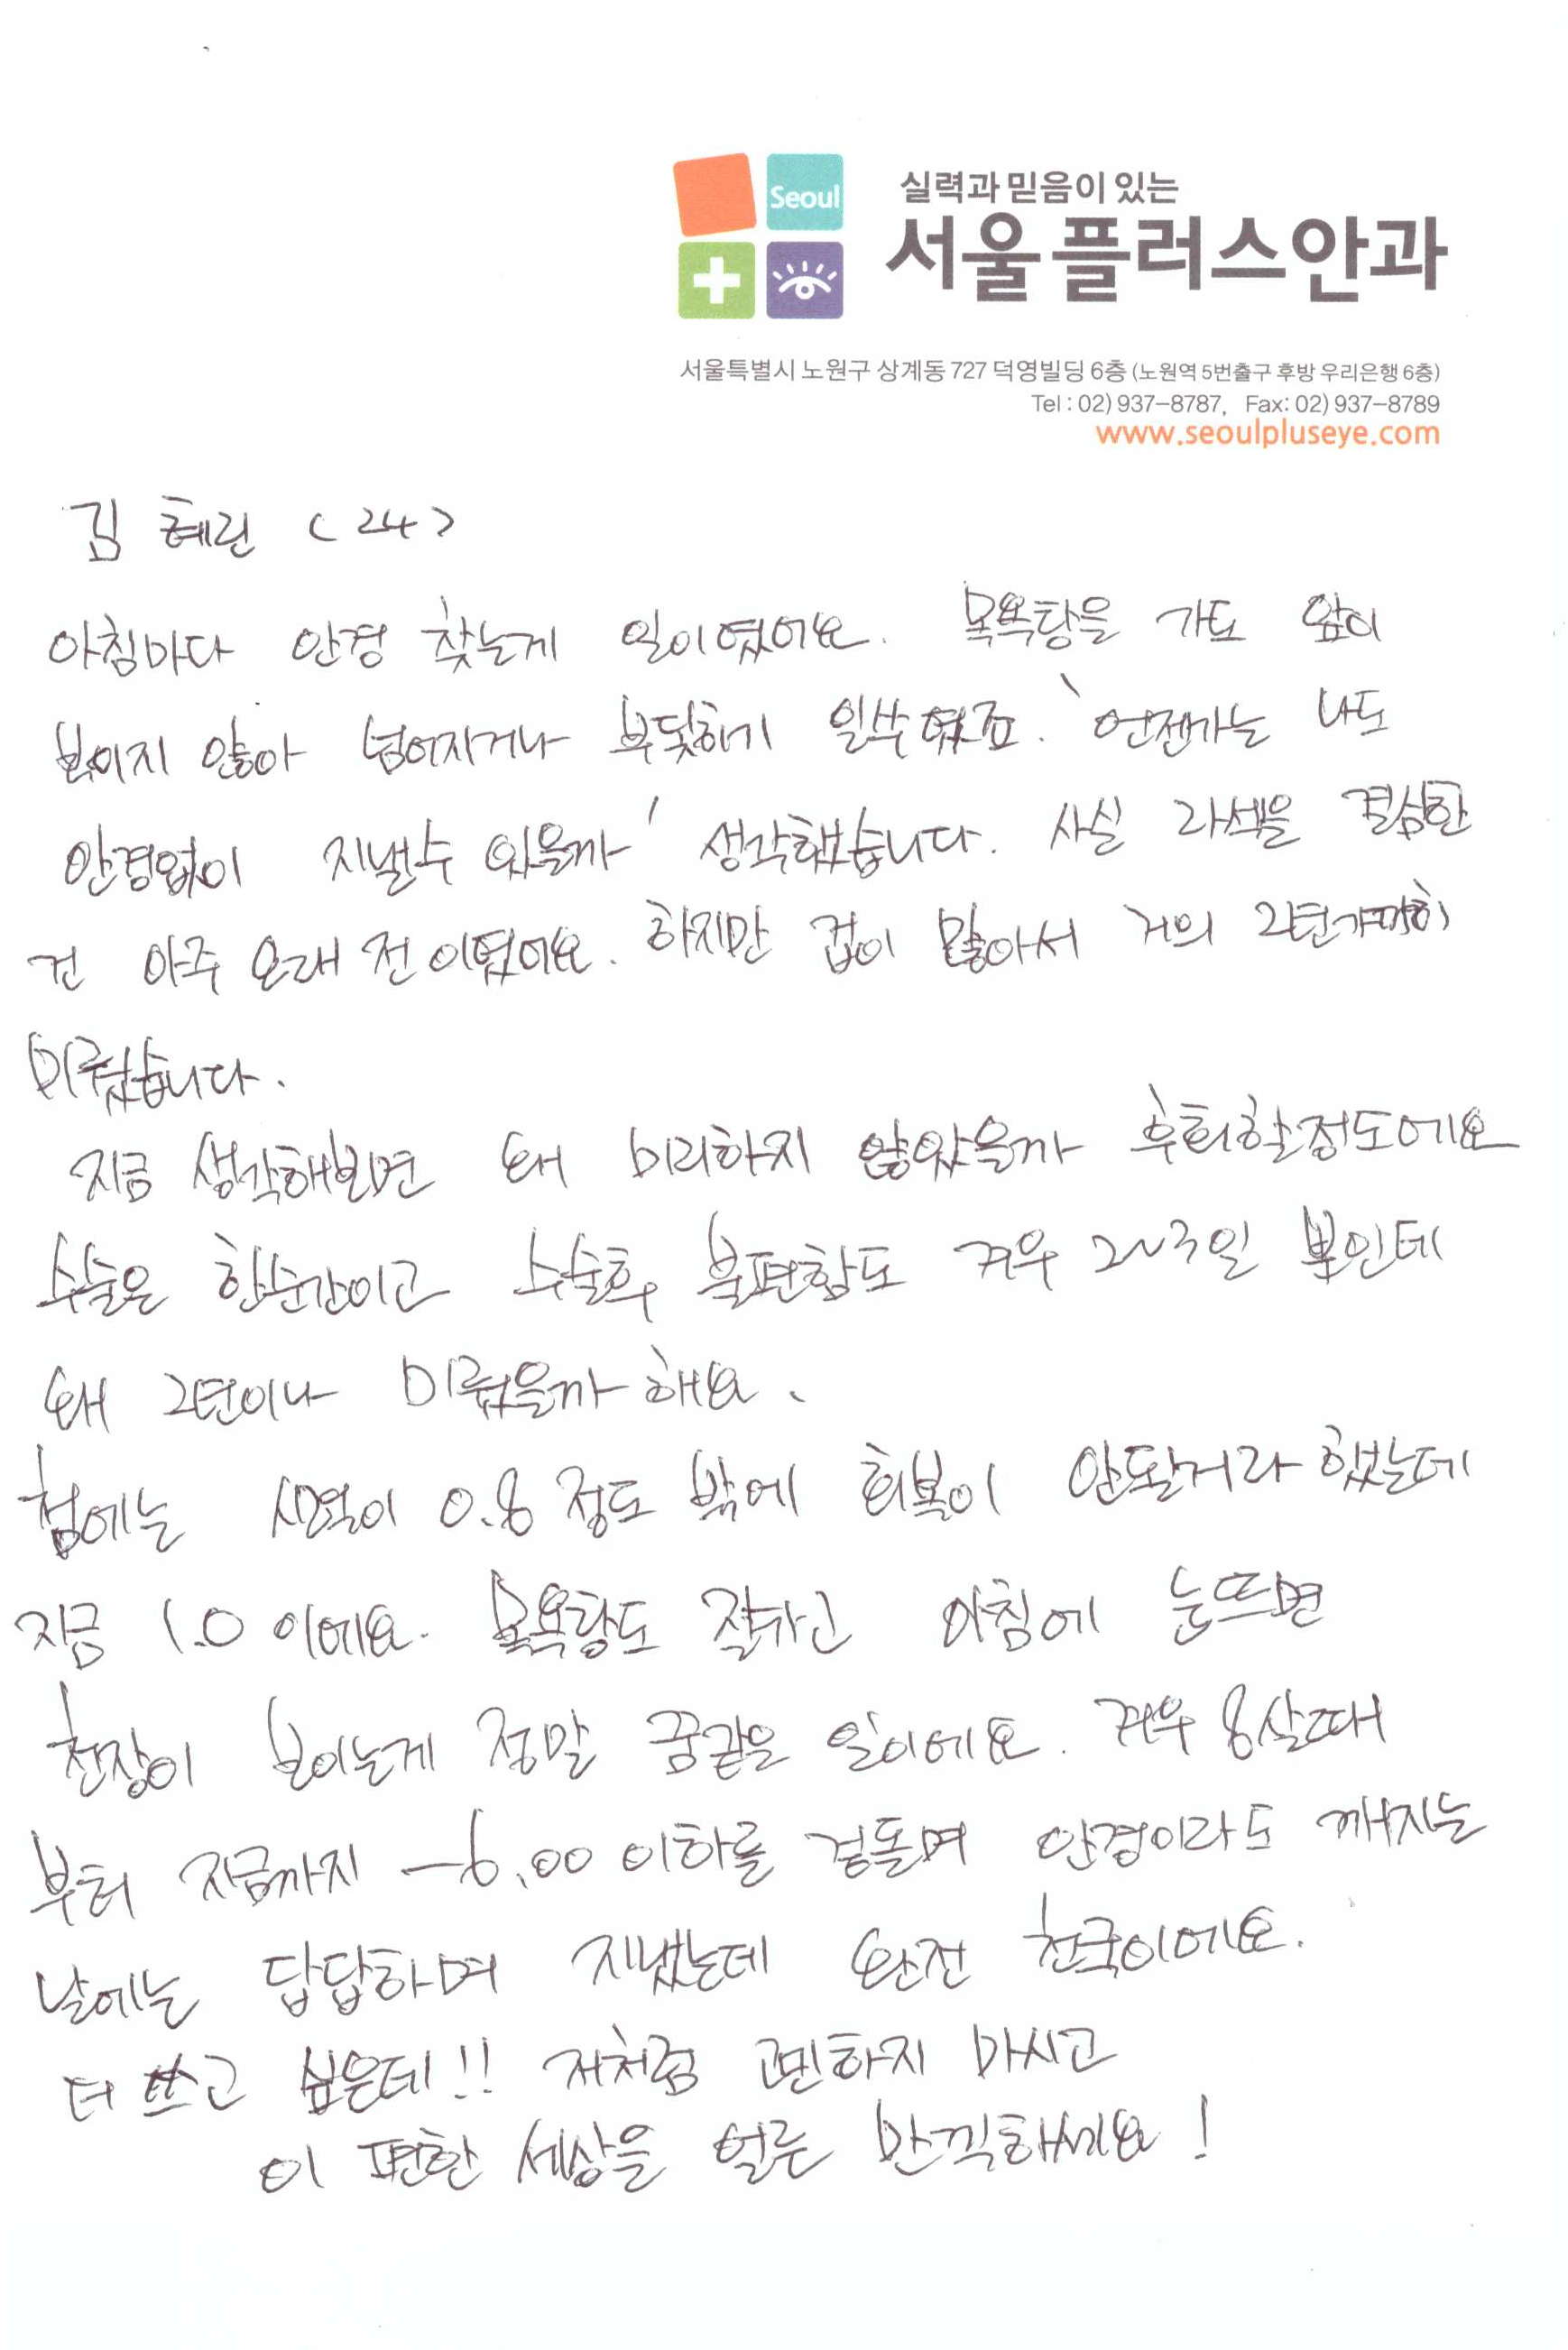 Seoul
실력과 믿음이 있는
서울플러스안과
서울특별시 노원구 상계동 727 덕영빌딩 6층 (노원역 5번출구 후방 우리은행 6층)
Tel : 02) 937-8787, Fax: 02) 937-8789
www.seoulpluseye.com
김 혜린 (24)
아침마다 안경 찾는게 일이였어요. 목욕탕을 가도 앞이
보이지 않아 넘어지거나 부딪히기 일쑤였죠. '언젠가는 나도
안경없이 지낼수 있을까' 생각했습니다. 사실 라섹을 결심한
건 아주 오래 전이였어요. 하지만 겁이 많아서 거의 2년가까이
미뤘습니다.
지금 생각해보면 왜 미리하지 않았을까 후회할정도에요
수술은 한순간이고 수술후 불편함도 겨우 2~3일 뿐인데
왜 2년이나 미뤘을까 해요.
첨에는 시력이 0.8 정도 밖에 회복이 안될거라 했는데
지금 1.0 이에요. 목욕탕도 잘가고 아침에 눈뜨면
천장이 보이는게 정말 꿈같은 일이에요. 겨우 8살때
부터 지금까지 -6.00 이하를 겉돌며 안경이라도 깨지는
날에는 답답하며 지냈는데 완전 천국이에요.
더 쓰고 싶은데!! 저처럼 고민하지 마시고
이 편한 세상을 얼른 만끽하세요!